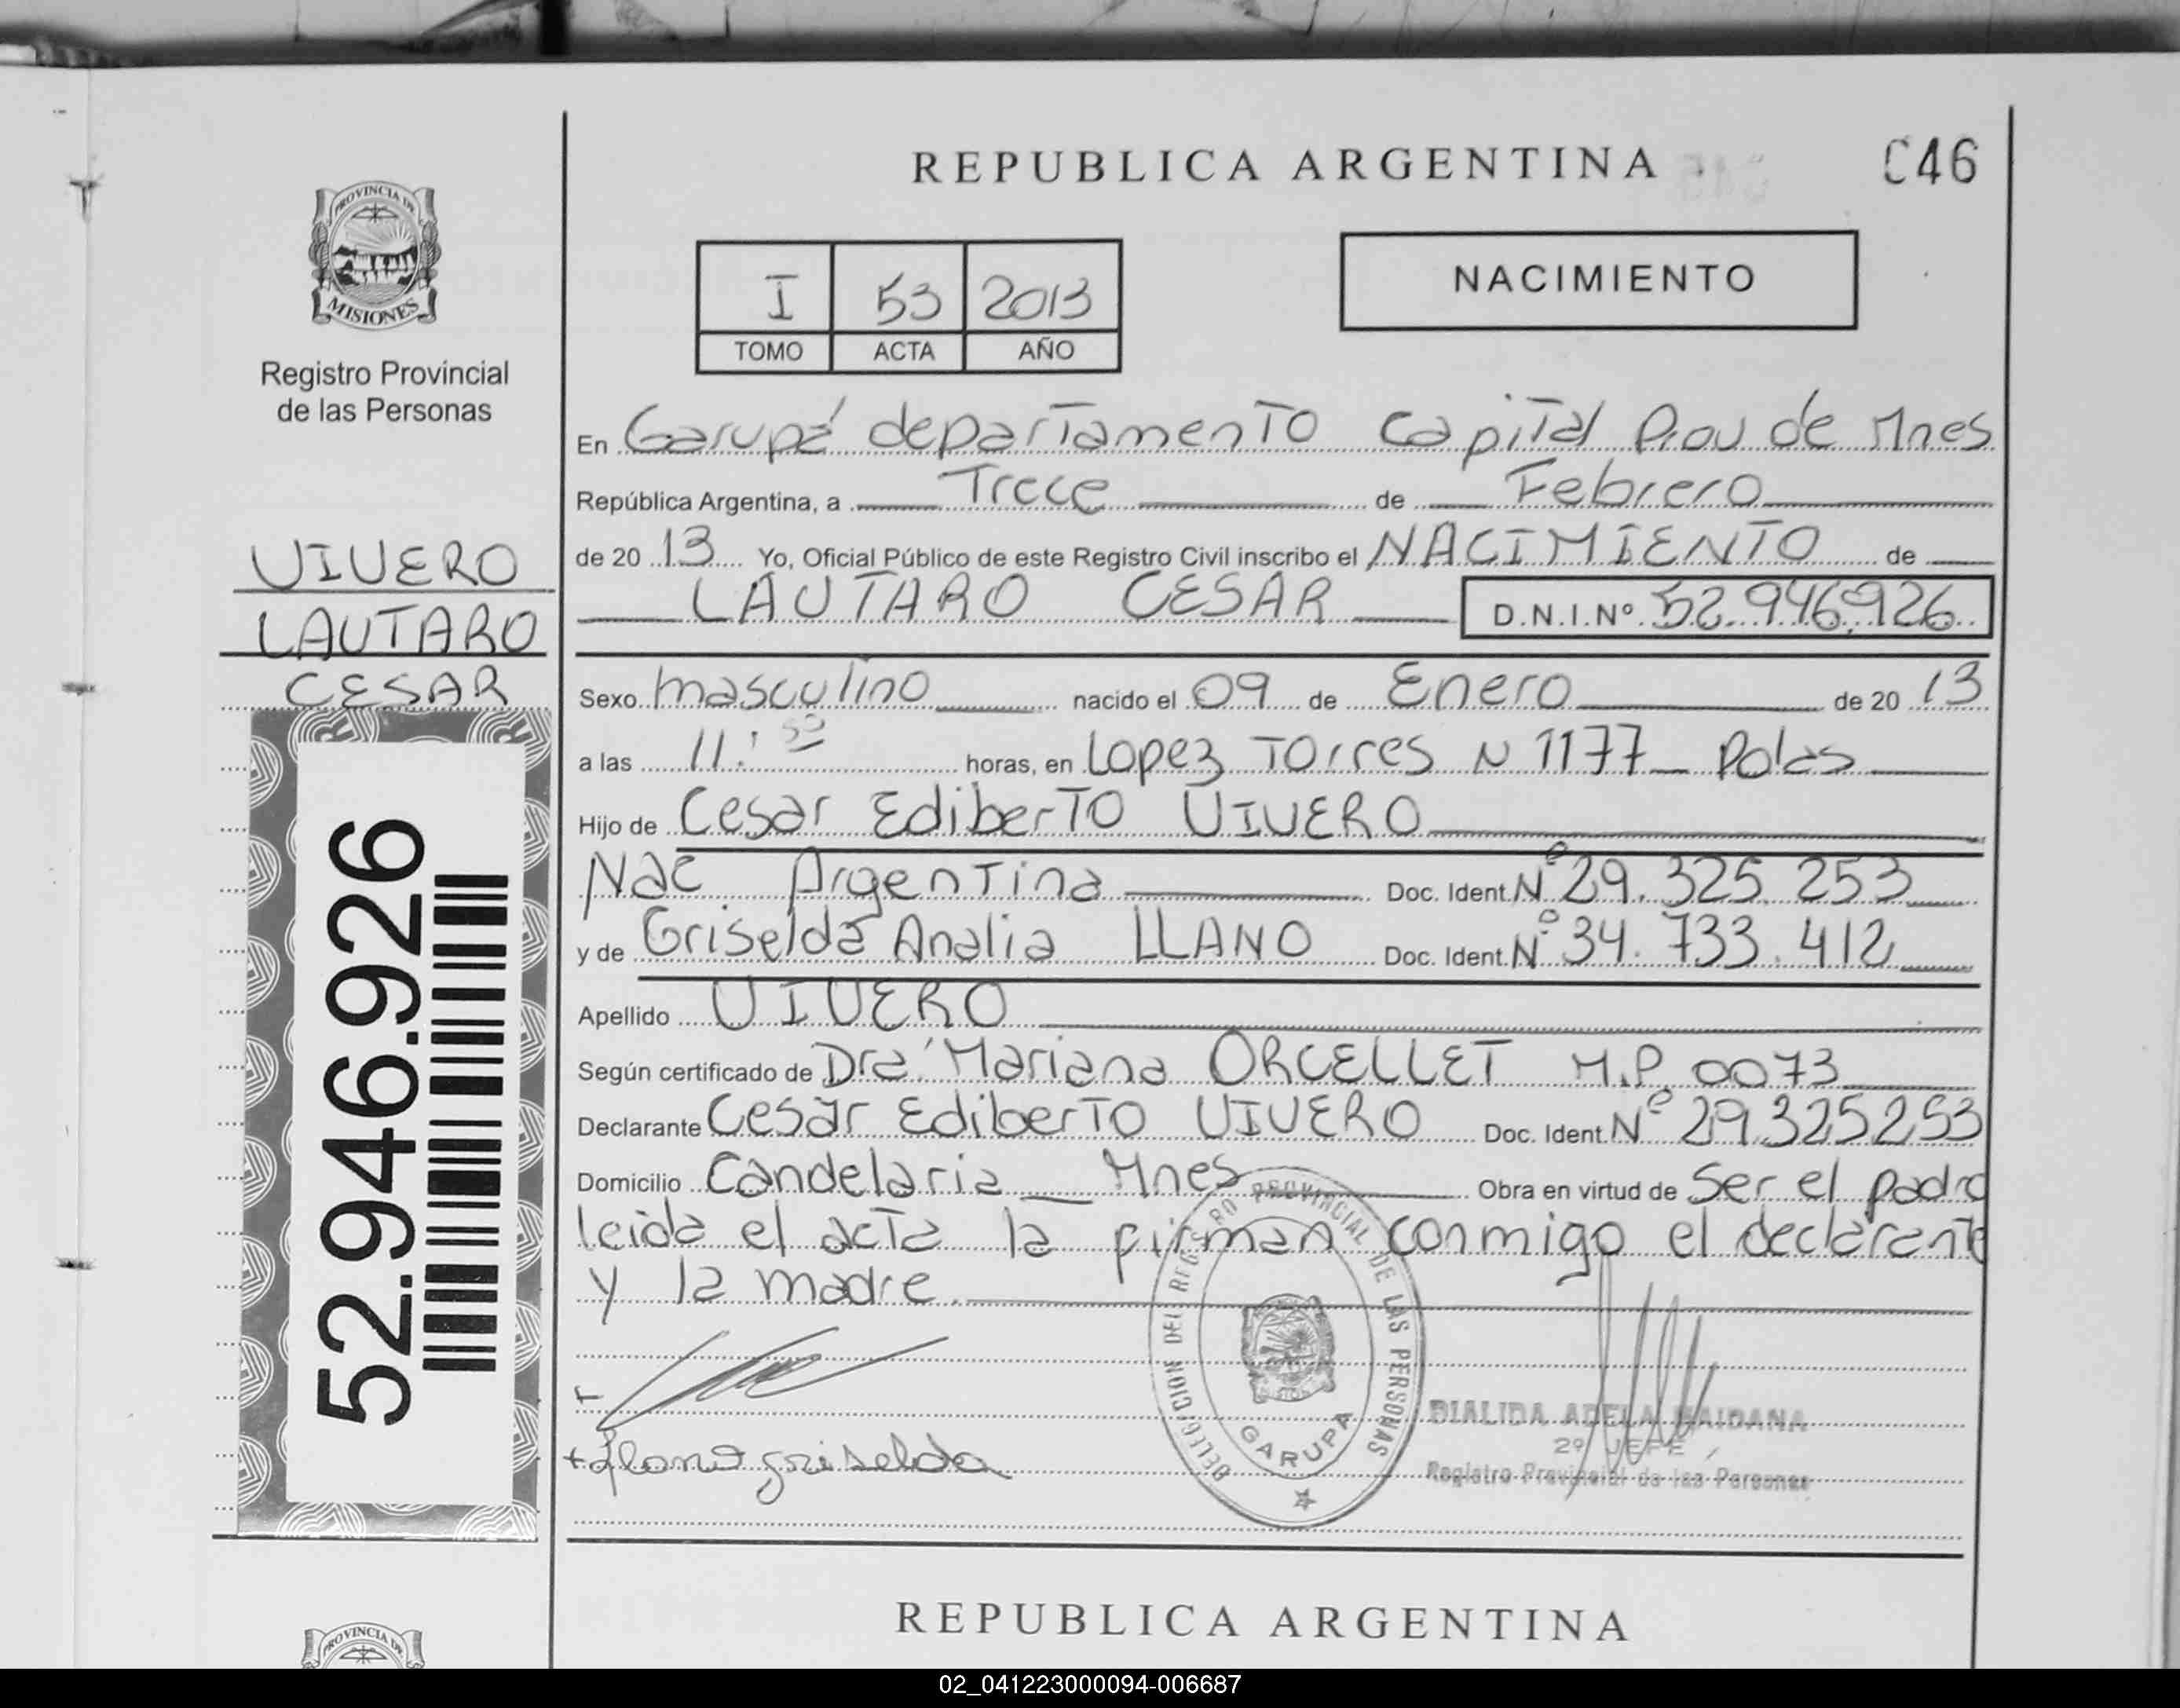 REPUBLICA ARGENTINA
C46
PROVINCIA DE
MISIONES
Registro Provincial
de las Personas
I 53 2013
TOMO ACTA AÑO
NACIMIENTO
VIVERO
LAUTARO
CESAR
52.946.926
En Garupá departamento Capital Prov de Mnes
República Argentina, a Trece de Febrero
de 20 13 Yo, Oficial Público de este Registro Civil inscribo el NACIMIENTO de
LAUTARO CESAR D.N.I.Nº 52.946.926
Sexo masculino nacido el 09 de Enero de 20 13
a las 11:50 horas, en Lopez Torres N 1177 - Pdas
Hijo de Cesar Ediberto VIVERO
Nac Argentina Doc. Ident. Nº 29.325.253
y de Griselda Analia LLANO Doc. Ident. Nº 34.733.412
Apellido VIVERO
Según certificado de Dra. Mariana ORCELLET M.P. 0073
Declarante Cesar Ediberto VIVERO Doc. Ident. Nº 29.325253
Domicilio Candelaria - Mnes Obra en virtud de Ser el padre
leida el acta la firman conmigo el declarante
y la madre.
DELEGACION DEL REGISTRO PROVINCIAL DE LAS PERSONAS
GARUPA
DIALIDA ADELA MAIDANA
2º JEFE
Registro Provincial de las Personas
Llano griselda
REPUBLICA ARGENTINA
PROVINCIA DE
02_041223000094-006687